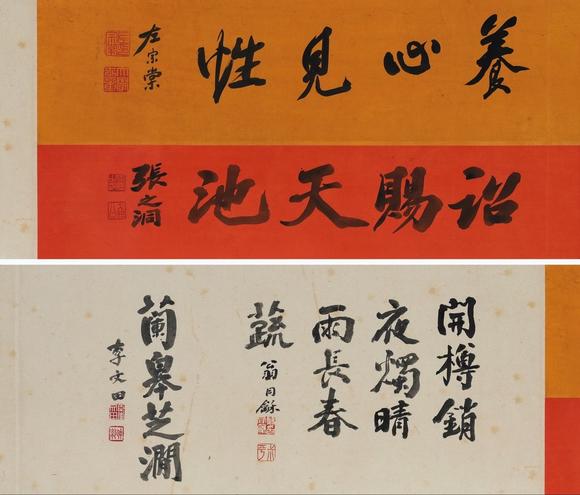 養心見性
左宗棠
詔賜天池
張之洞
開樽銷
夜燭晴
雨長春
蔬
翁同龢
蘭皋芝澗
李文田